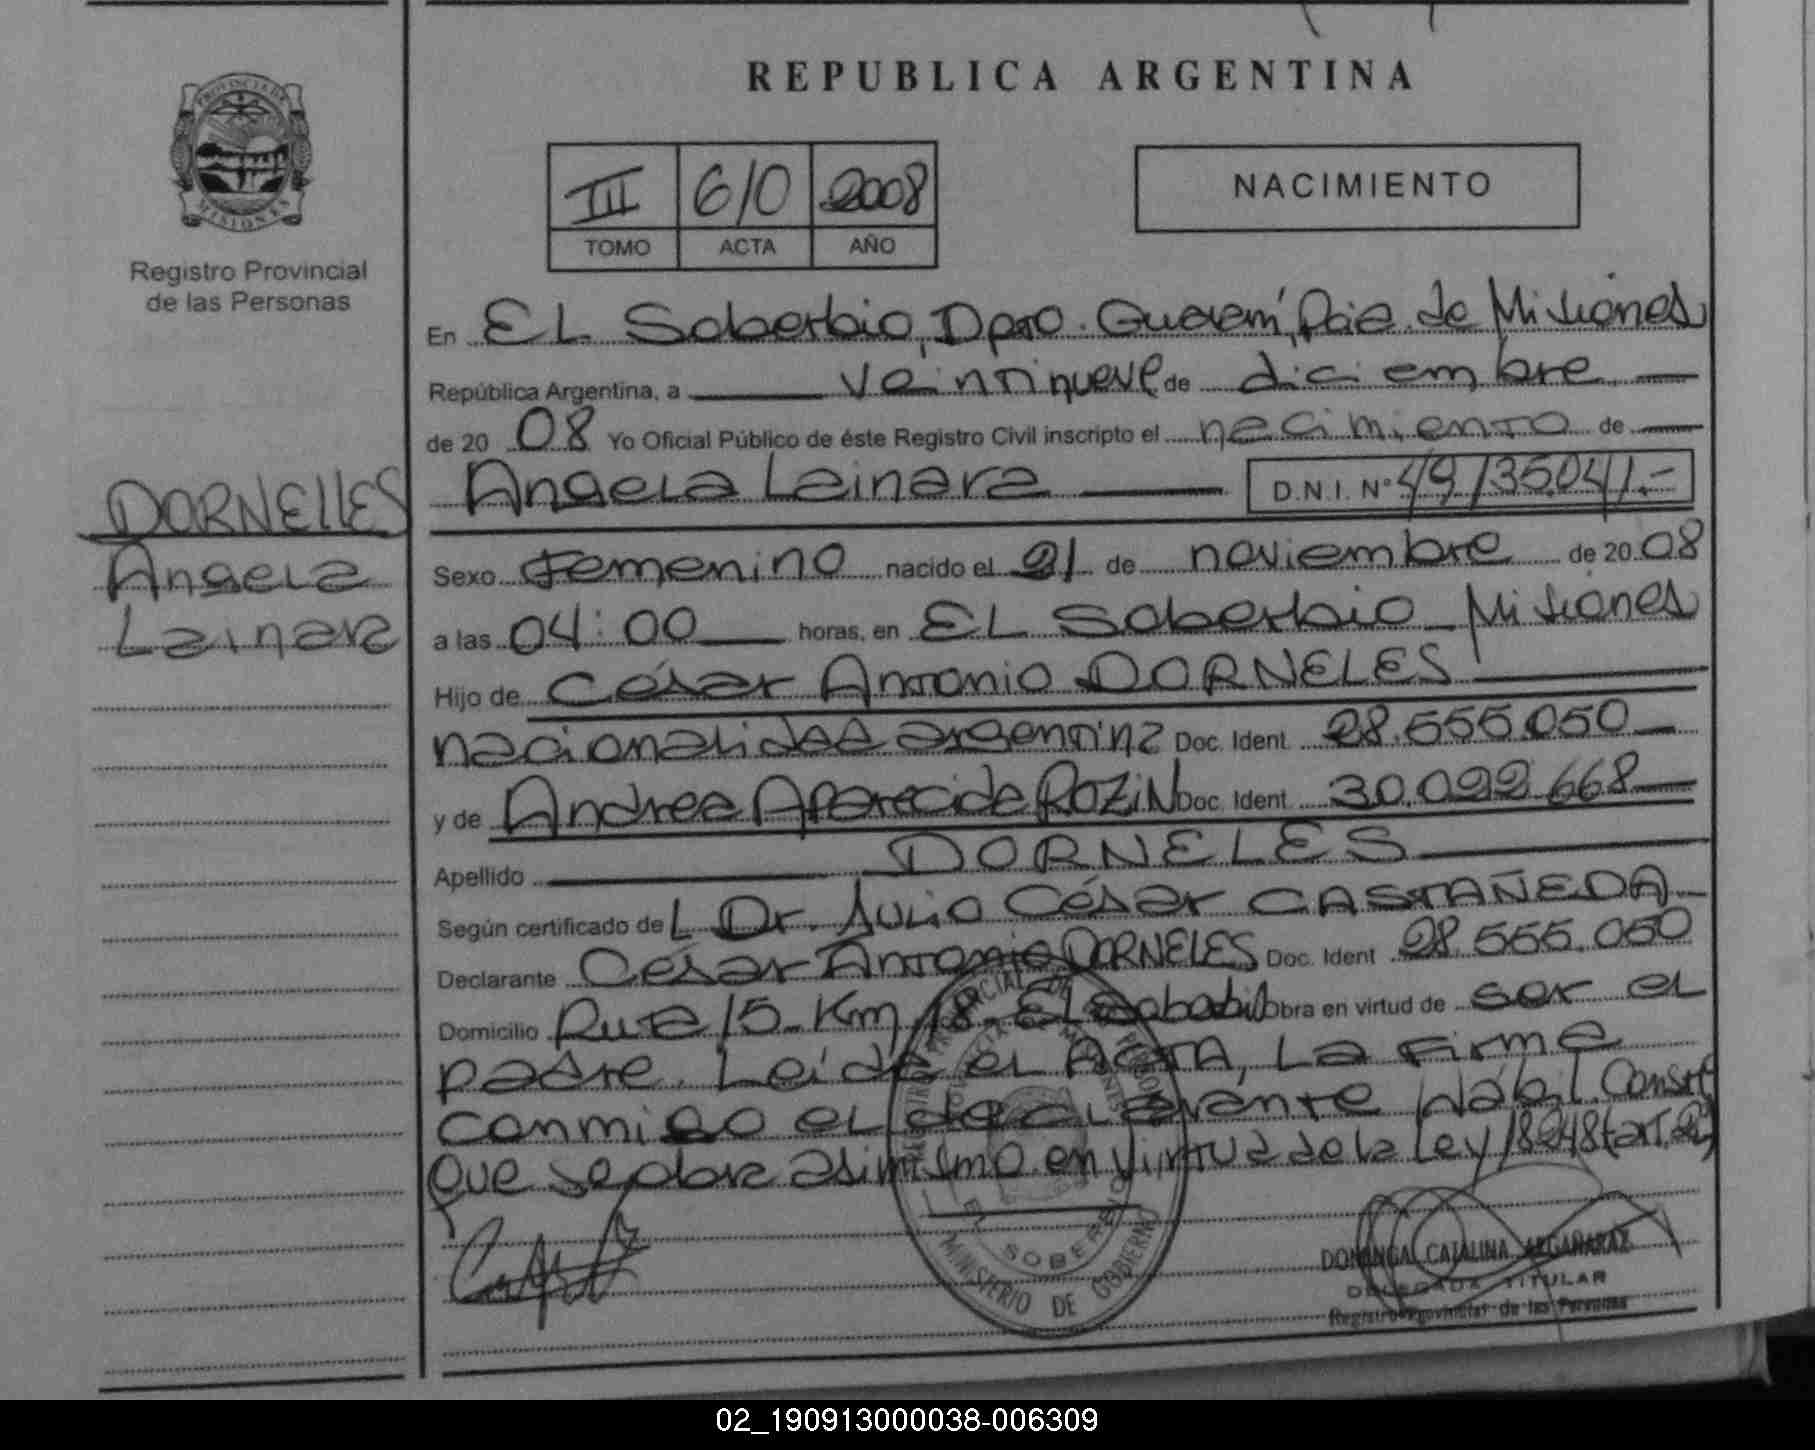 REPUBLICA ARGENTINA
PROVINCIA DE
MISIONES
Registro Provincial
de las Personas
III 610 2008
TOMO ACTA AÑO
NACIMIENTO
En EL Soberbio, Dpto. Guaraní, Pcia. de Misiones
República Argentina, a veintinueve de diciembre
de 2008 Yo Oficial Público de éste Registro Civil inscripto el nacimiento de
Angela Lainara D.N.I. Nº 49.135.041.-
DORNELLES
Angela
Lainara
Sexo Femenino nacido el 21 de noviembre de 2008
a las 04:00 horas, en EL Soberbio - Misiones
Hijo de César Antonio DORNELES
nacionalidad argentina Doc. Ident. 28.555.050
y de Andrea Aparecida ROZiN Doc. Ident. 30.022.668
Apellido DORNELES
Según certificado del Dr. Julio César CASTAÑEDA
Declarante César Antonio DORNELES Doc. Ident. 28.555.050
Domicilio Ruta 15 - Km 18 - El Soberbio Obra en virtud de ser el
padre. Leída el ACTA, La Firma
conmigo el declarante Hábil. Const
que se obra asimismo en virtud de la Ley 18248 (art. 2)
EL SOBERBIO
MINISTERIO DE GOBIERNO
CATALINA ARGAÑARAZ
DELEGADA TITULAR
Registro Provincial de las Personas
02_190913000038-006309